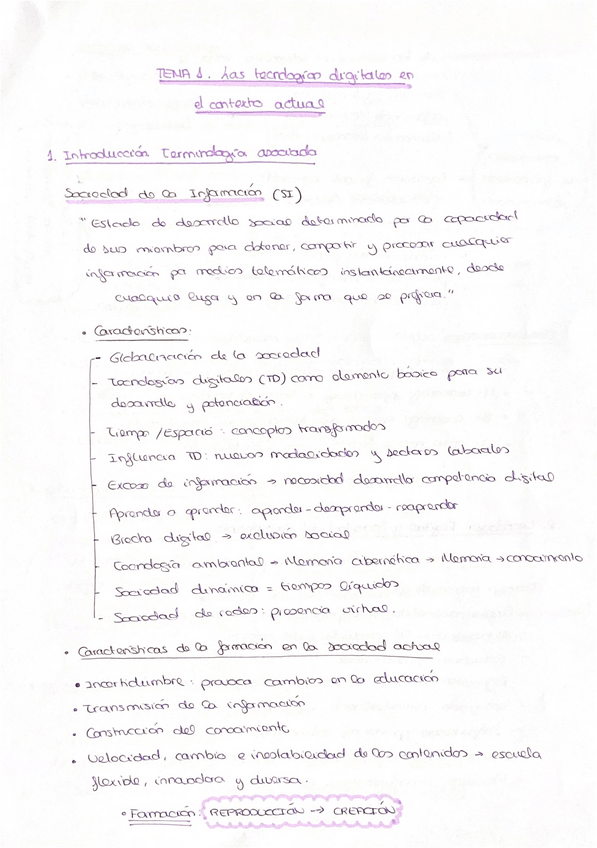 TEMA 1. Las tecnologías digitales en
el contexto actual
1. Introducción Terminología asociada
Sociedad de la Información (SI)
"Estado de desarrollo social determinado por la capacidad
de sus miembros para obtener, compartir y procesar cualquier
información por medios telemáticos instantáneamente, desde
cualquier lugar y en la forma que se prefiera."
• Características:
- Globalización de la sociedad
- Tecnologías digitales (TD) como elemento básico para su
desarrollo y potenciación.
- Tiempo / Espacio : conceptos transformados
- Influencia TD: nuevas modalidades y sectores laborales
- Exceso de información → necesidad desarrollo competencia digital
- Aprender a aprender: aprender-desaprender-reaprender
- Brecha digital → exclusión social
- Tecnología ambiental - Memoria cibernética → Memoria → conocimiento
- Sociedad dinámica = tiempos líquidos
- Sociedad de redes: presencia virtual.
• Características de la formación en la sociedad actual
• Incertidumbre : provoca cambios en la educación
• Transmisión de la información
• Construcción del conocimiento
• Velocidad, cambio e inestabilidad de los contenidos → escuela
flexible, innovadora y diversa.
• Formación: REPRODUCCIÓN → CREACIÓN